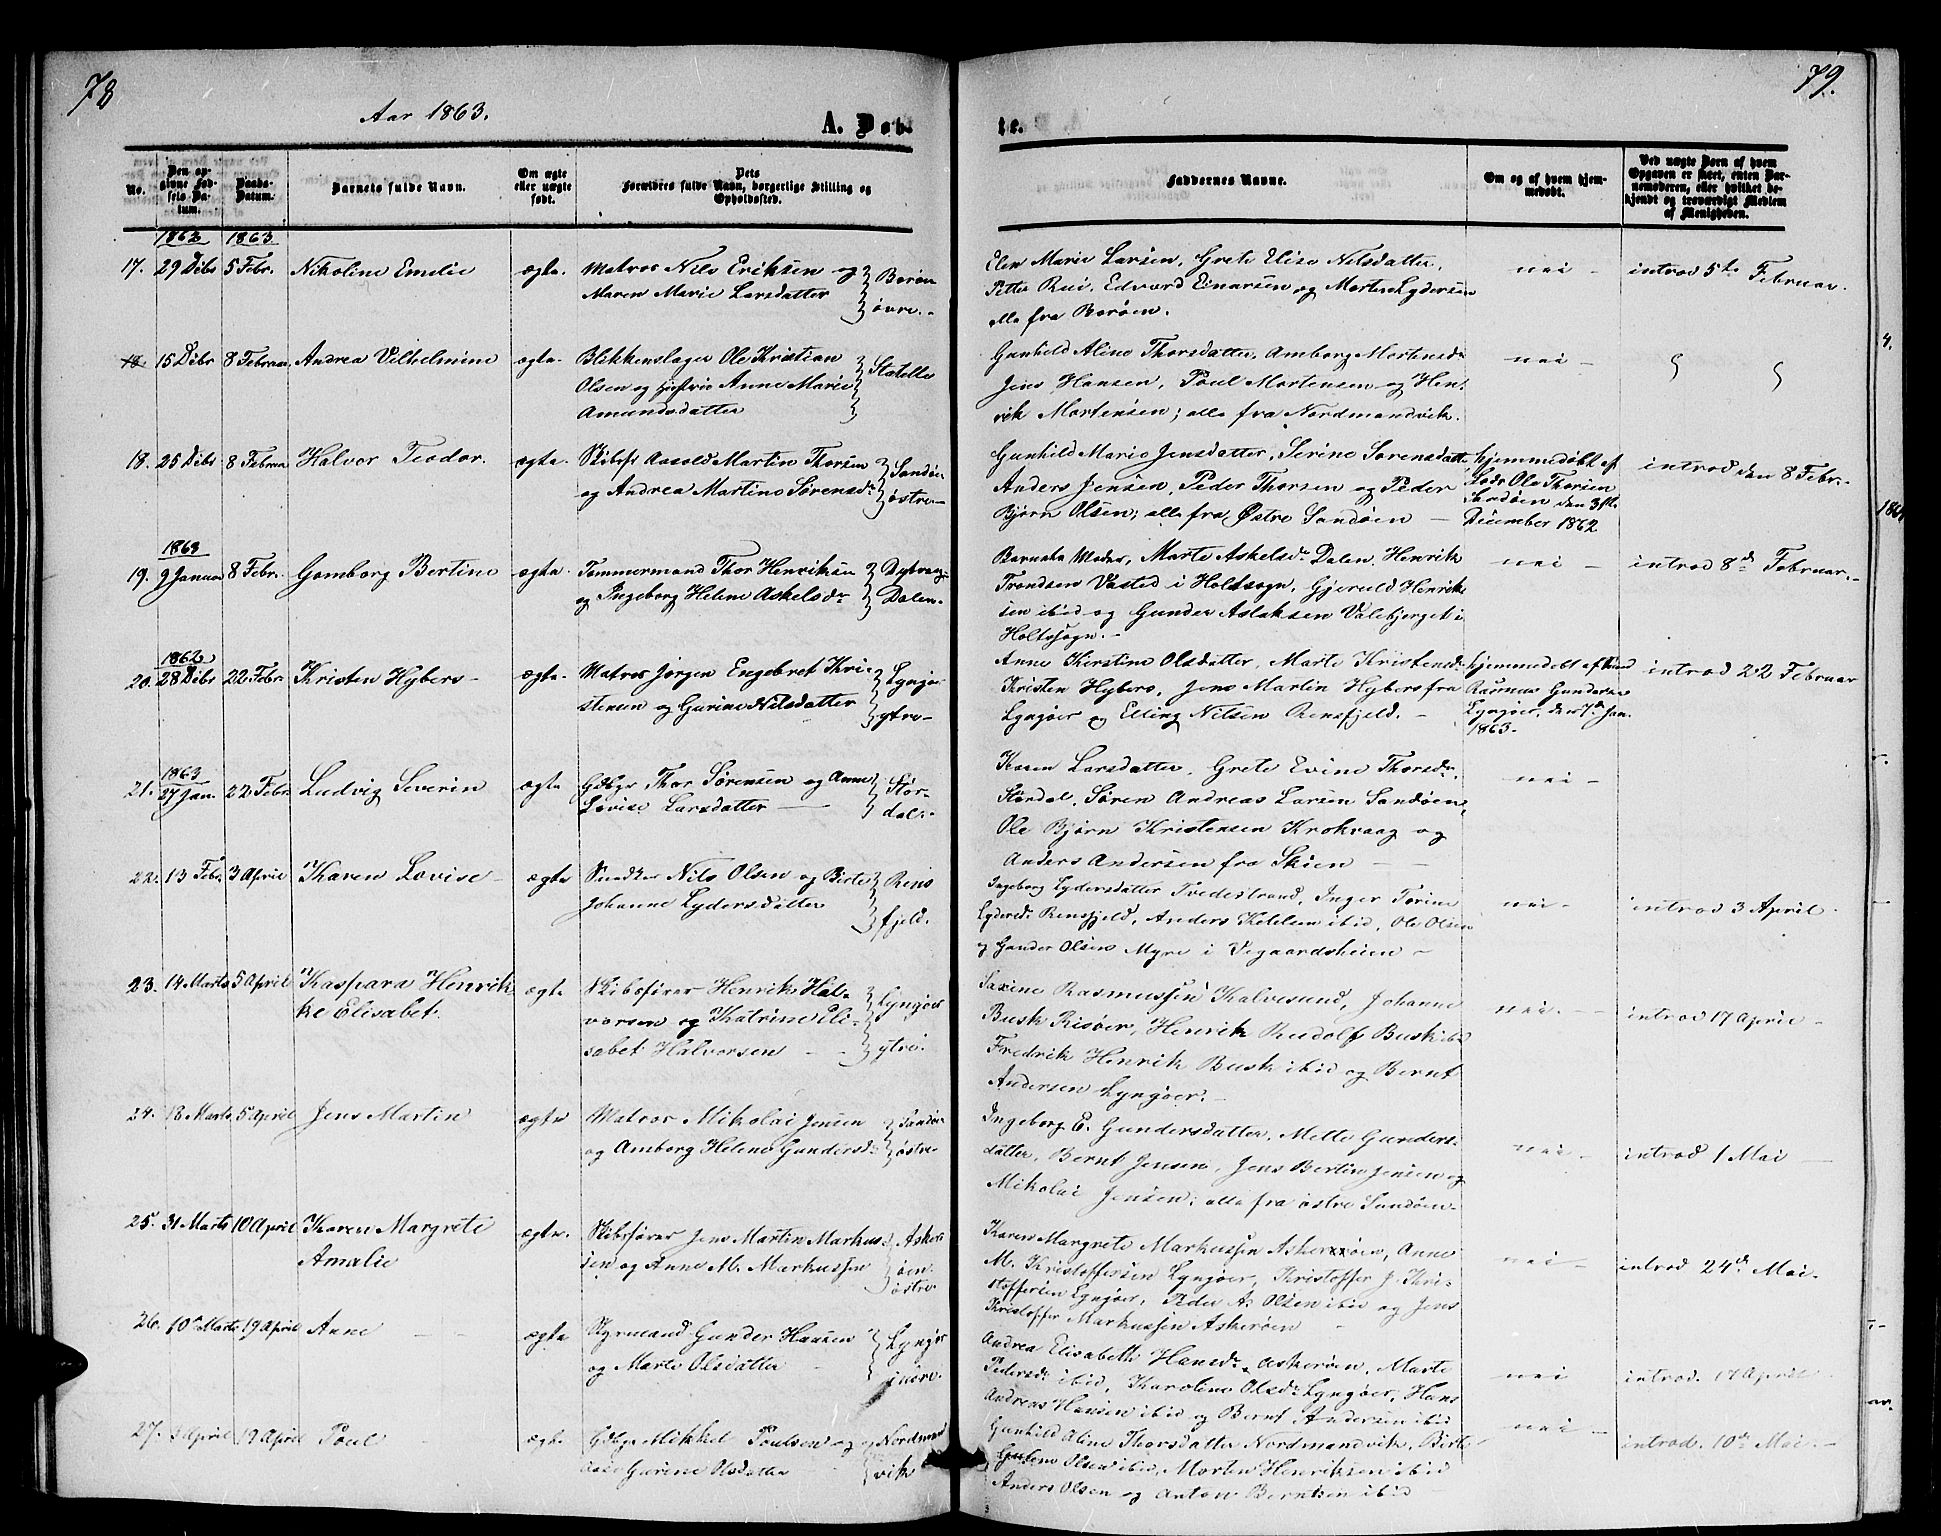 78
Aar 1863.
A. Døb-
No.
Den op-
givne Fød-
sels Da-
tum.
Daabs-
Datum.
Barnets fulde Navn.
Om ægte
eller uægte
født.
Dets
Forældres fulde Navn, borgerlige Stilling og
Opholdssted.
1862 1863
17. 29 Dcbr 5 Febr. Nikoline Emelie ægte. Matros Nils Eriksen og Borøen
Maren Marie Larsdatter øvre.
18 15 Dcbr 8 Februar Andrea Vilhelmine ægte. Blikkenslager Ole Kristian Statelle
Olsen og Anne Marie
Amundsdatter
18. 25 Dcbr 8 Februar Halvor Teodor. ægte. Skibsf. Aasold Martin Thorsen Sandøen
og Andrea Martine Sørensdr østre
1863
19. 9 Januar 8 Febr. Gomborg Bertine ægte. Tømmermand Thor Henriksen Dybvaag
og Ingeborg Helene Askelsdr Dalen.
1862
20. 28 Dcbr 22 Febr Kristen Hybers ægte. Matros Jørgen Engebret Kri- Lyngøer
stensen og Gurine Nilsdatter ytre
1863
21. 27 Jan. 22 Febr. Ludvig Severin ægte Gdbr Thor Sørensen og Anne Stor-
Lovise Larsdatter dal.
22. 13 Febr. 3 April Karen Lovise ægte Snedker Nils Olsen og Birte Rens
Johanne Lydersdatter fjeld.
23. 14 Marts 5 April Kaspara Henrik ægte Skibsfører Henrik Hal- Lyngøer
ke Elisabet. vorsen og Katrine Eli- ytre.
sabet Halvorsen
24. 18 Marts 5 April Jens Martin ægte Matros Mikolai Jensen Sandøen
og Amborg Helene Gundersdr østre
25. 31 Marts 10 April Karen Margrete ægte. Skibsfører Jens Martin Markus- Asker
Amalie sen og Anne M. Markussen øen
østre
26. 10de Marts 19 April Anne ægte Styrmand Gunder Hansen Lyngør
og Marte Olsdatter indre.
27. April 19 April Poul ægte Gdbr Mikkel Poulsen og Nordmand
Gurine Olsdatter vik
79.
te.
Faddernes Navne.
Om og af hvem hjem-
medøbt.
Ved uægte Børn af hvem
Opgaven er skeet, enten Bar-
nemoderen, eller hvilket be-
kjendt og troværdigt Medlem
af Menigheden.
Elen Marie Larsen, Grete Elise Nilsdatter, nei introd 5te Februar.
Petter Rui, Edvard Einarsen og Morten Lydersen
alle fra Borøen.
Gunhild Aline Thorsdatter, Amborg Mortensdr nei
Jens Hansen, Poul Mortensen og Hen-
rik Mortensen; alle fra Nordmandvik.
Gunhild Marie Jensdatter, Serine Sørensdatter, hjemmedøbt af introd den 8 Febr.
Anders Jensen, Peder Thorsen og Peder Lods Ole Thorsen
Bjørn Olsen; alle fra Østre Sandøen Sandøen den 31te
December 1862
Barnets Moder, Marte Askelsdr Dalen, Henrik nei introd 8de Februar.
Trondsen Vasted i Holtsogn, Gjeruld Henrik
sen ibid og Gunder Aslaksen Valebjerget i
Holtsogn.
Anne Kirstine Olsdatter, Marte Kristensdr hjemmedøbt af introd 22 Februar
Kristen Hybers, Jens Martin Hybers fra Rasmus Gundersen
Lyngøer og Elling Nilsen Rensfjeld. Lyngøer, den 7de Jan.
1863.
Karen Larsdatter, Grete Evine Thorsdr. nei
Stordal, Søren Andreas Larsen Sandøen,
Ole Bjørn Kristensen Krokvaag og
Anders Andersen fra Skien
Ingeborg Lydersdatter Tvedestrand, Inger Torine nei. introd 3 April.
Lydersdr Rensfjeld, Anders Ketelsen ibid, Ole Olsen
og Gunder Olsens Myre i Vegaardsheien
Saxine Rasmussen Kalvesund, Johanne nei. introd 17 April
Busk Risøer, Henrik Rudolf Busk ibid
Fredrik Henrik Busk ibid og Bernt
Andersen Lyngøer.
Ingeborg E. Gundersdatter, Mette Gunders- nei introd 1 Mai
datter, Bernt Jensen, Jens Bertin Jensen og
Mikolai Jensen; alle fra østre Sandøen.
Karen Margrete Markussen Askerøen, Anne nei introd 24de Mai.
M. Kristoffersen Lyngøer, Kristoffer J. Kri-
stoffersen Lyngøer, Peder A. Olsen ibid og Jens
Kristoffer Markussen Askerøen
Andrea Elisabeth Hansdr. Askerøen, Marte nei introd. 17 April
Pedersdr ibid, Karoline Olsdr Lyngøer, Hans
Andreas Hansen ibid og Bernt Andersen ibid
Gunhild Aline Thorsdatter Nordmandvik, Birte nei introd. 10de Mai.
Olsen ibid, Morten Henriksen ibid
Anders Olsen og Anton Berntsen ibid